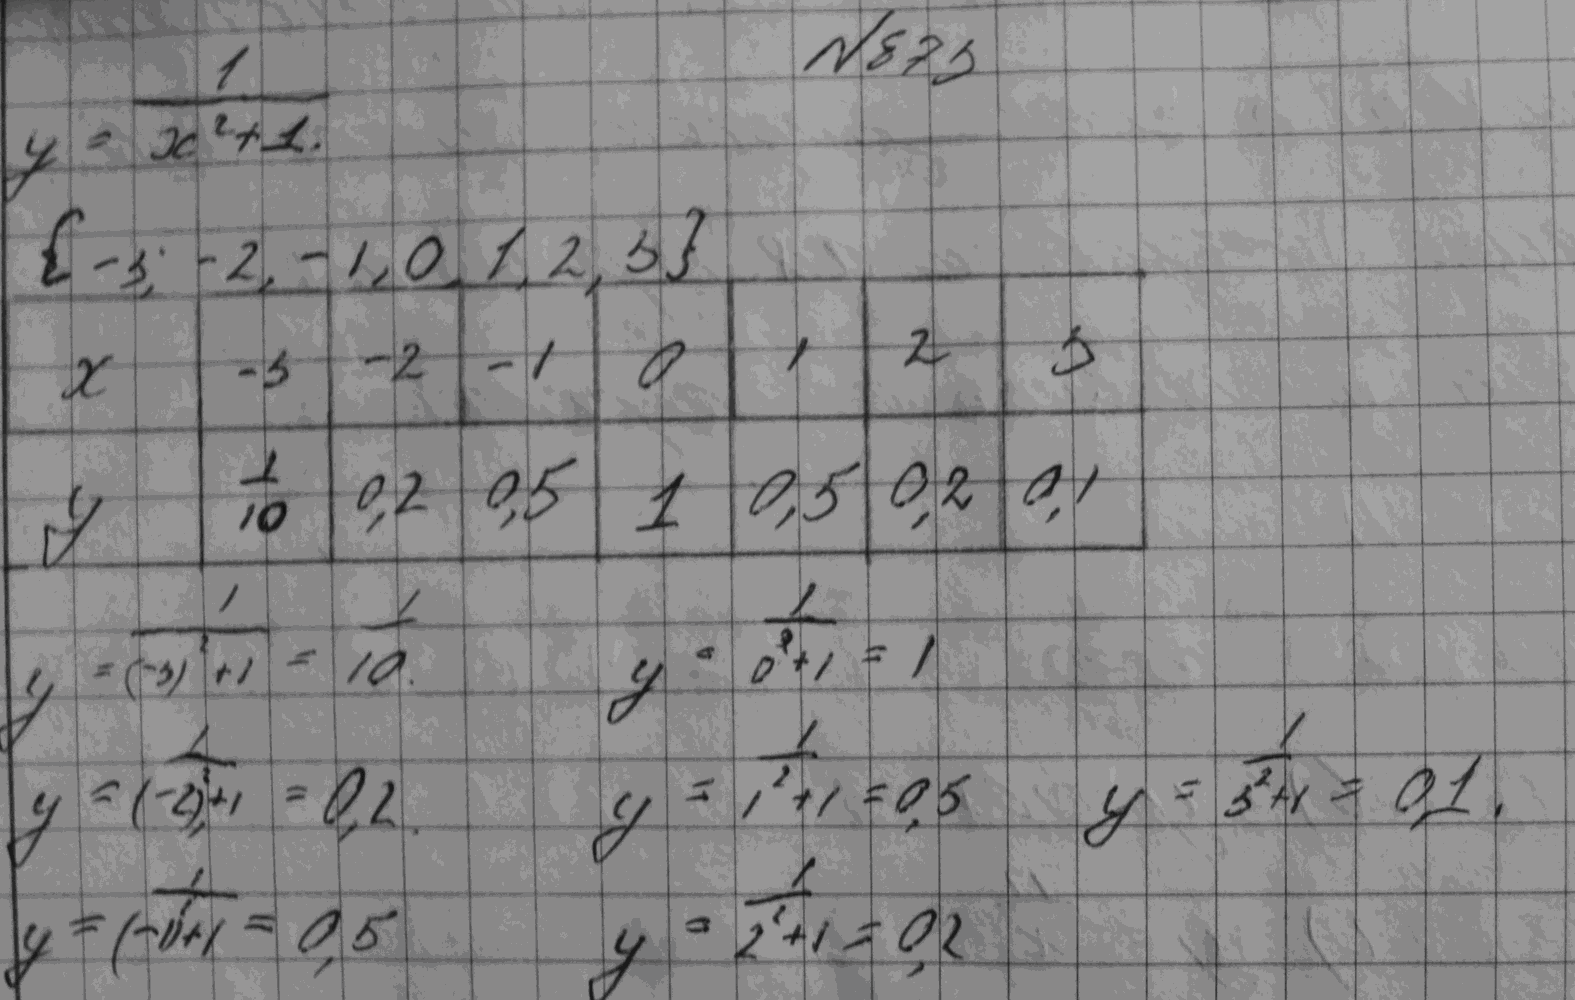 № 873
y = 1/(x² + 1).
{-3, -2, -1, 0, 1, 2, 3}
x -3 -2 -1 0 1 2 3
y 1/10 0,2 0,5 1 0,5 0,2 0,1
y = 1/((-3)² + 1) = 1/10. y = 1/(0² + 1) = 1
y = 1/((-2)² + 1) = 0,2. y = 1/(1² + 1) = 0,5 y = 1/(3² + 1) = 0,1.
y = 1/((-1)² + 1) = 0,5 y = 1/(2² + 1) = 0,2